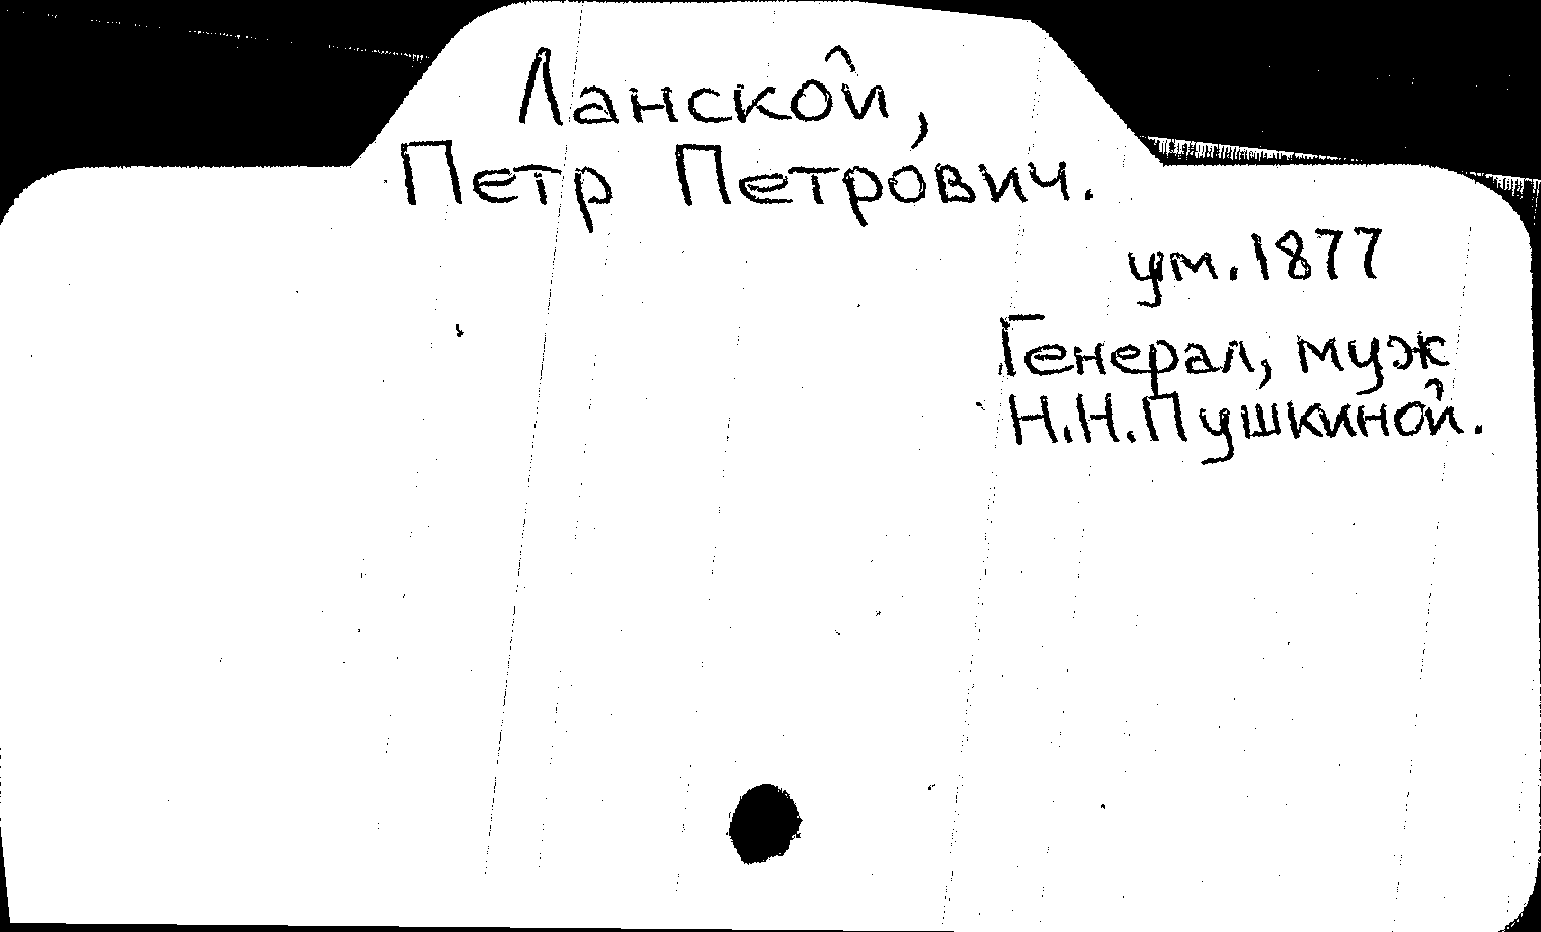 Ланской,
Петр Петрович.
ум. 1877
Генерал, муж
Н.Н.Пушкиной.